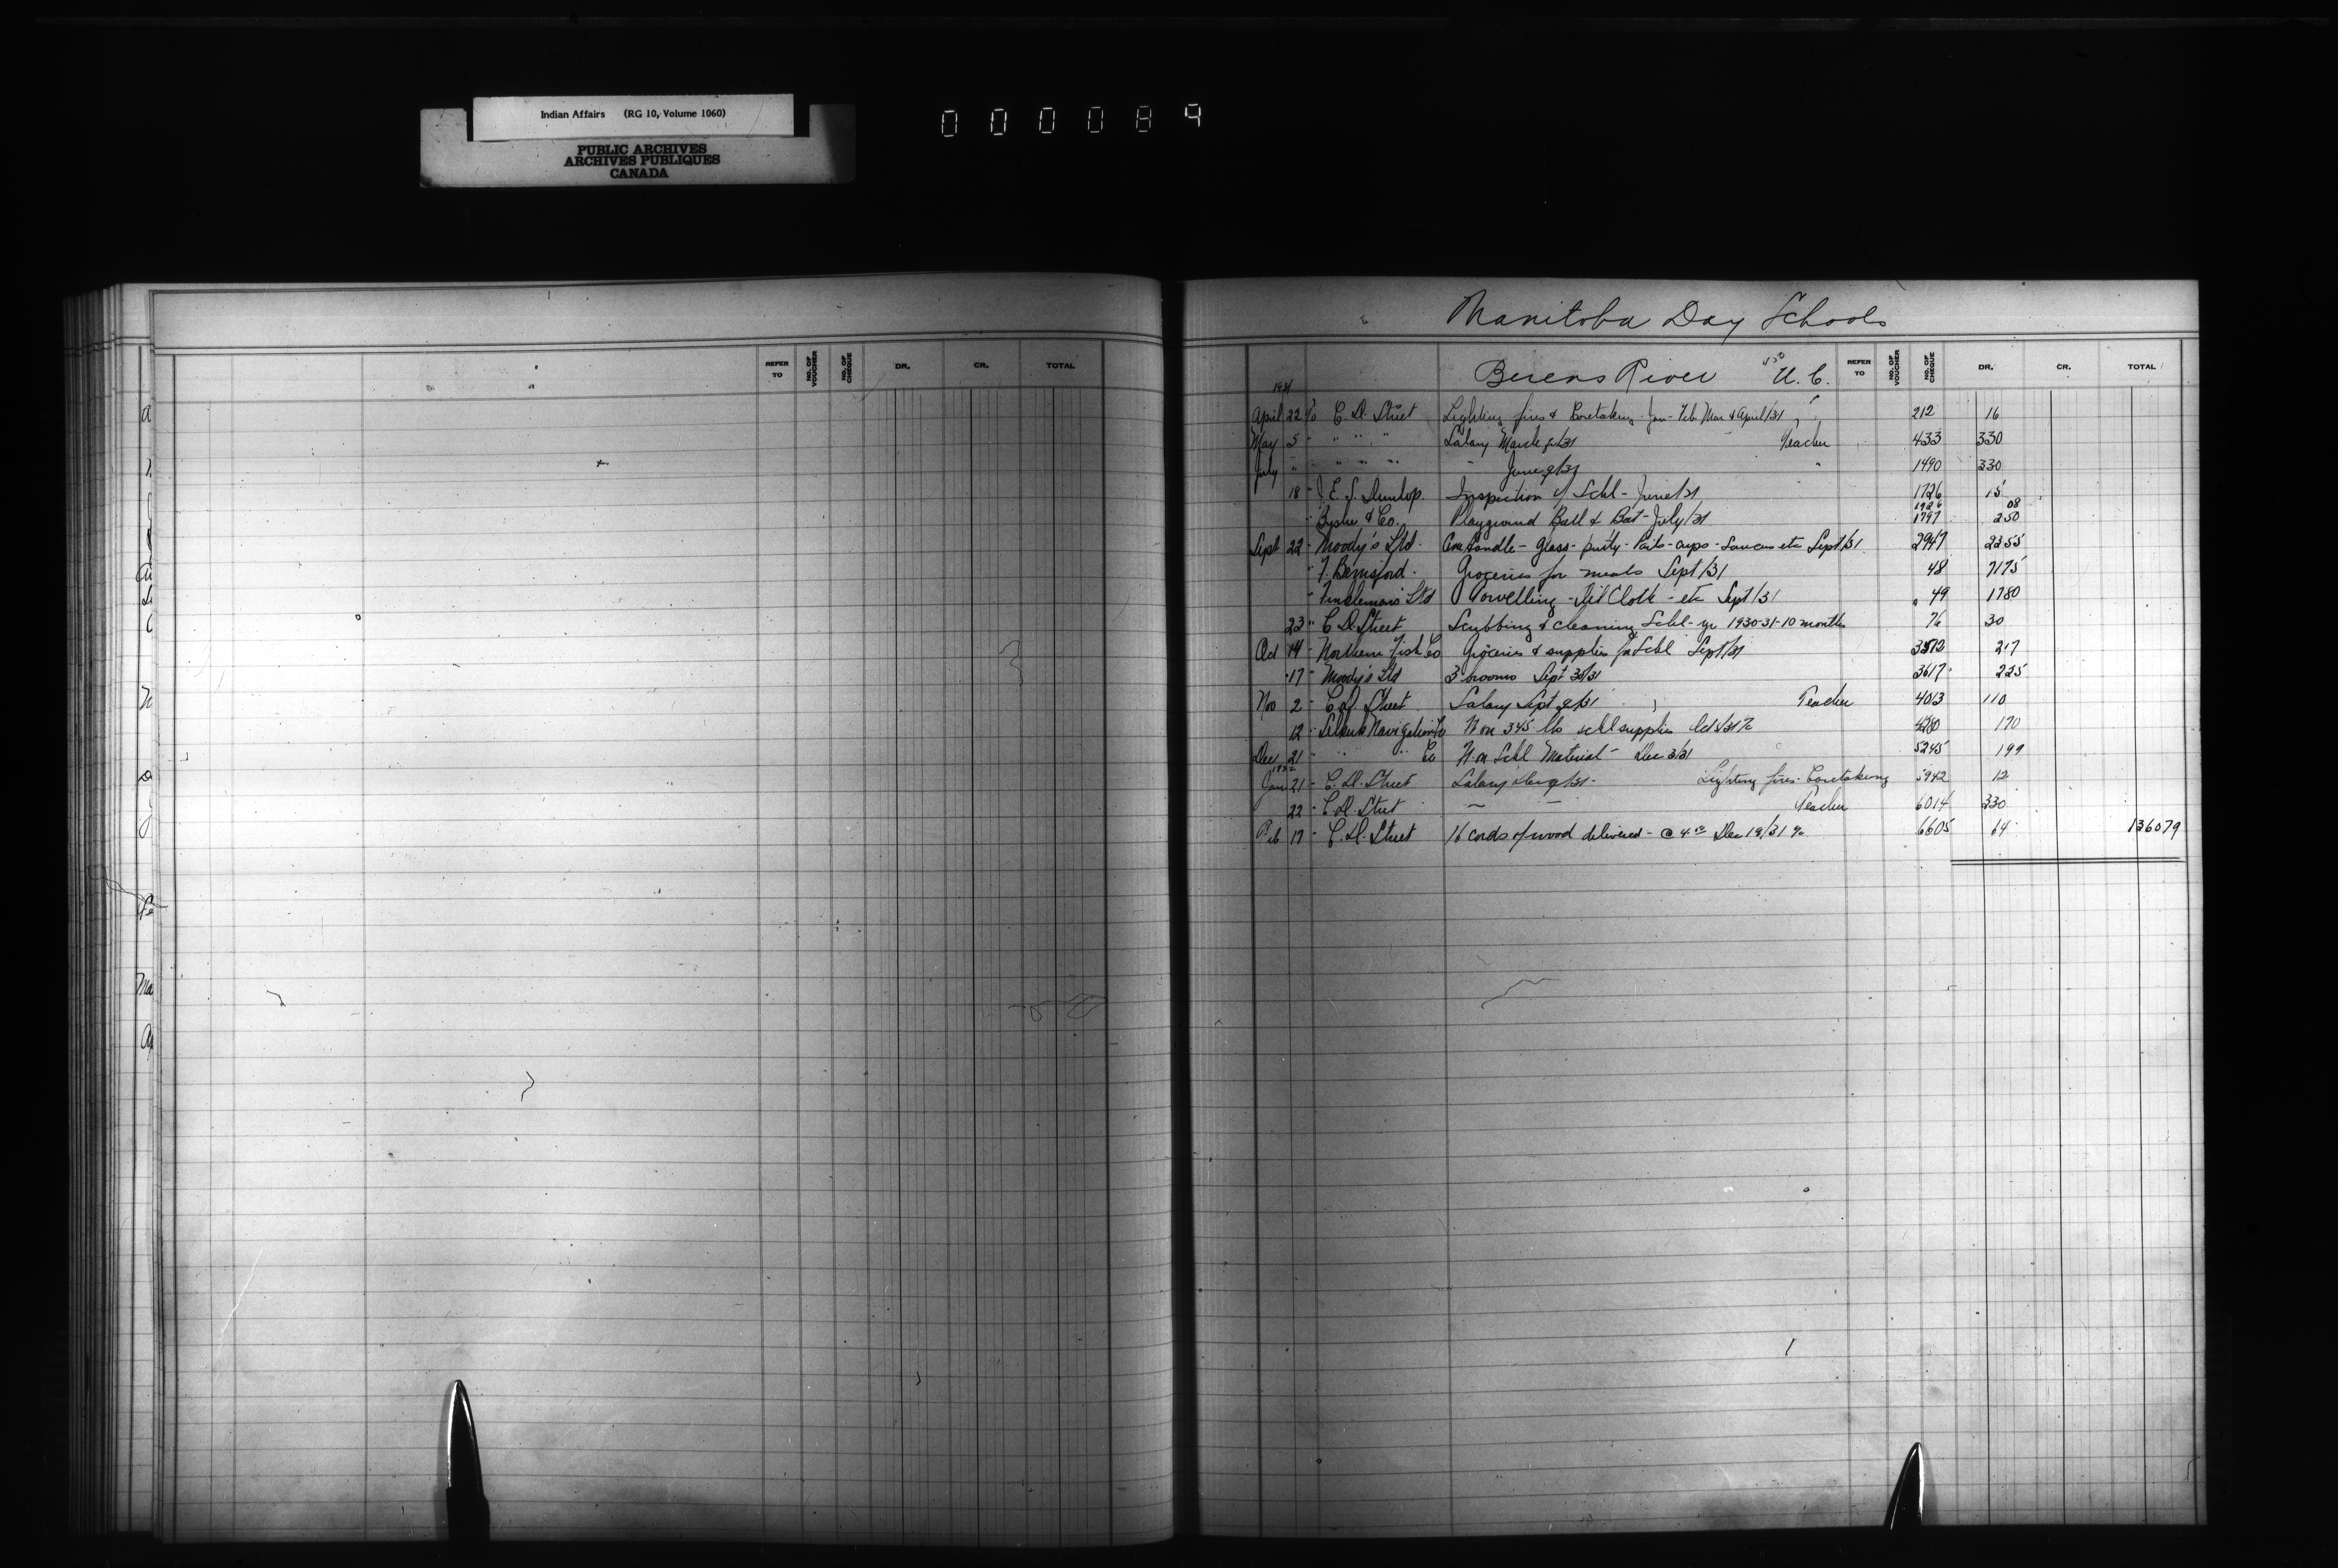 Indian Affairs (RG 10, Volume 1060)
PUBLIC ARCHIVES
ARCHIVES PUBLIQUES
CANADA
000089
Manitoba Day Schools
REFER TO NO. OF VOUCHER NO. OF CHEQUE DR. CR. TOTAL
Berens River U.C. REFER TO NO. OF VOUCHER NO. OF CHEQUE DR. CR. TOTAL
1931
April 22 To C. D. Street Lighting fires & Caretaking Jan - Feb Mar & April/31 212 16
May 5 " " " " Salary March q/31 Teacher 433 330
July " " " " " " June q/31 " 1490 330
18 " J. E. S. Dunlop Inspection of Schl - June/31 1726 15
1926 08
" Co. Playground Ball & Bat - July/31 1797 250
Sept 22 " Moody's Ltd. glass - putty - cups - Saucers etc Sept/31 2947 2355
" Groceries for meals Sept/31 48 7175
" Ltd Towelling - Oil Cloth - etc Sept/31 " 49 1780
23 " C D. Street Scrubbing & cleaning Schl - yr 1930-31-10 months 76 30
Oct 14 " Northern Fish Co Groceries & supplies for Schl Sept/31 217
17 " Moody's Ltd 3 brooms Sept 30/31 3617 225
Nov 2 " C. D. Street Salary Sept q/31 Teacher 4013 110
12 " Selkirk Navigation Co on 345 lbs schl supplies Oct 170
Dec 21 " " " Co on Schl Material - Dec 3/31 5245 199
1932
Jan 21 " C. D. Street Salary Dec q/31 - Lighting fires - Caretaking 5942 12
22 " C. D. Street " " Teacher 6014 330
Feb 17 " C. D. Street 16 cords of wood delivered - @ 4.00 Dec 19/31 6605 64 136079